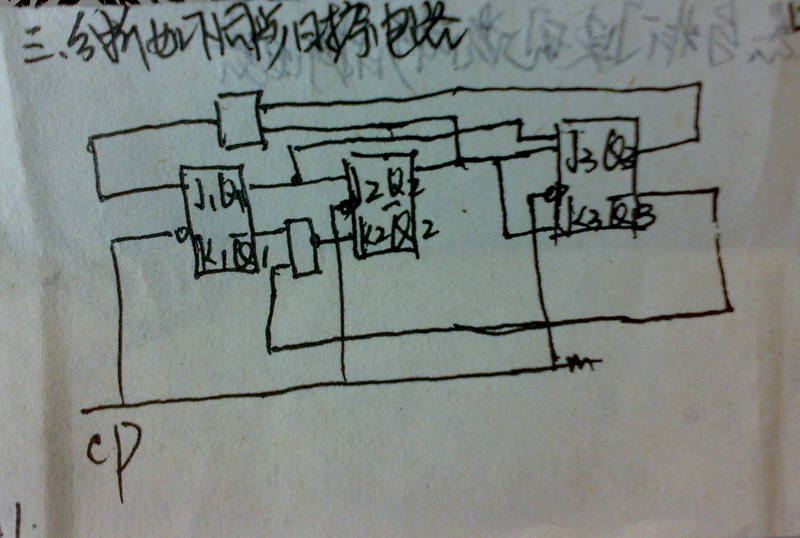 三、分析如下同步时序电路
J₁ Q₁
K₁ Q̄₁
J₂ Q₂
K₂ Q̄₂
J₃ Q₃
K₃ Q̄₃
CP